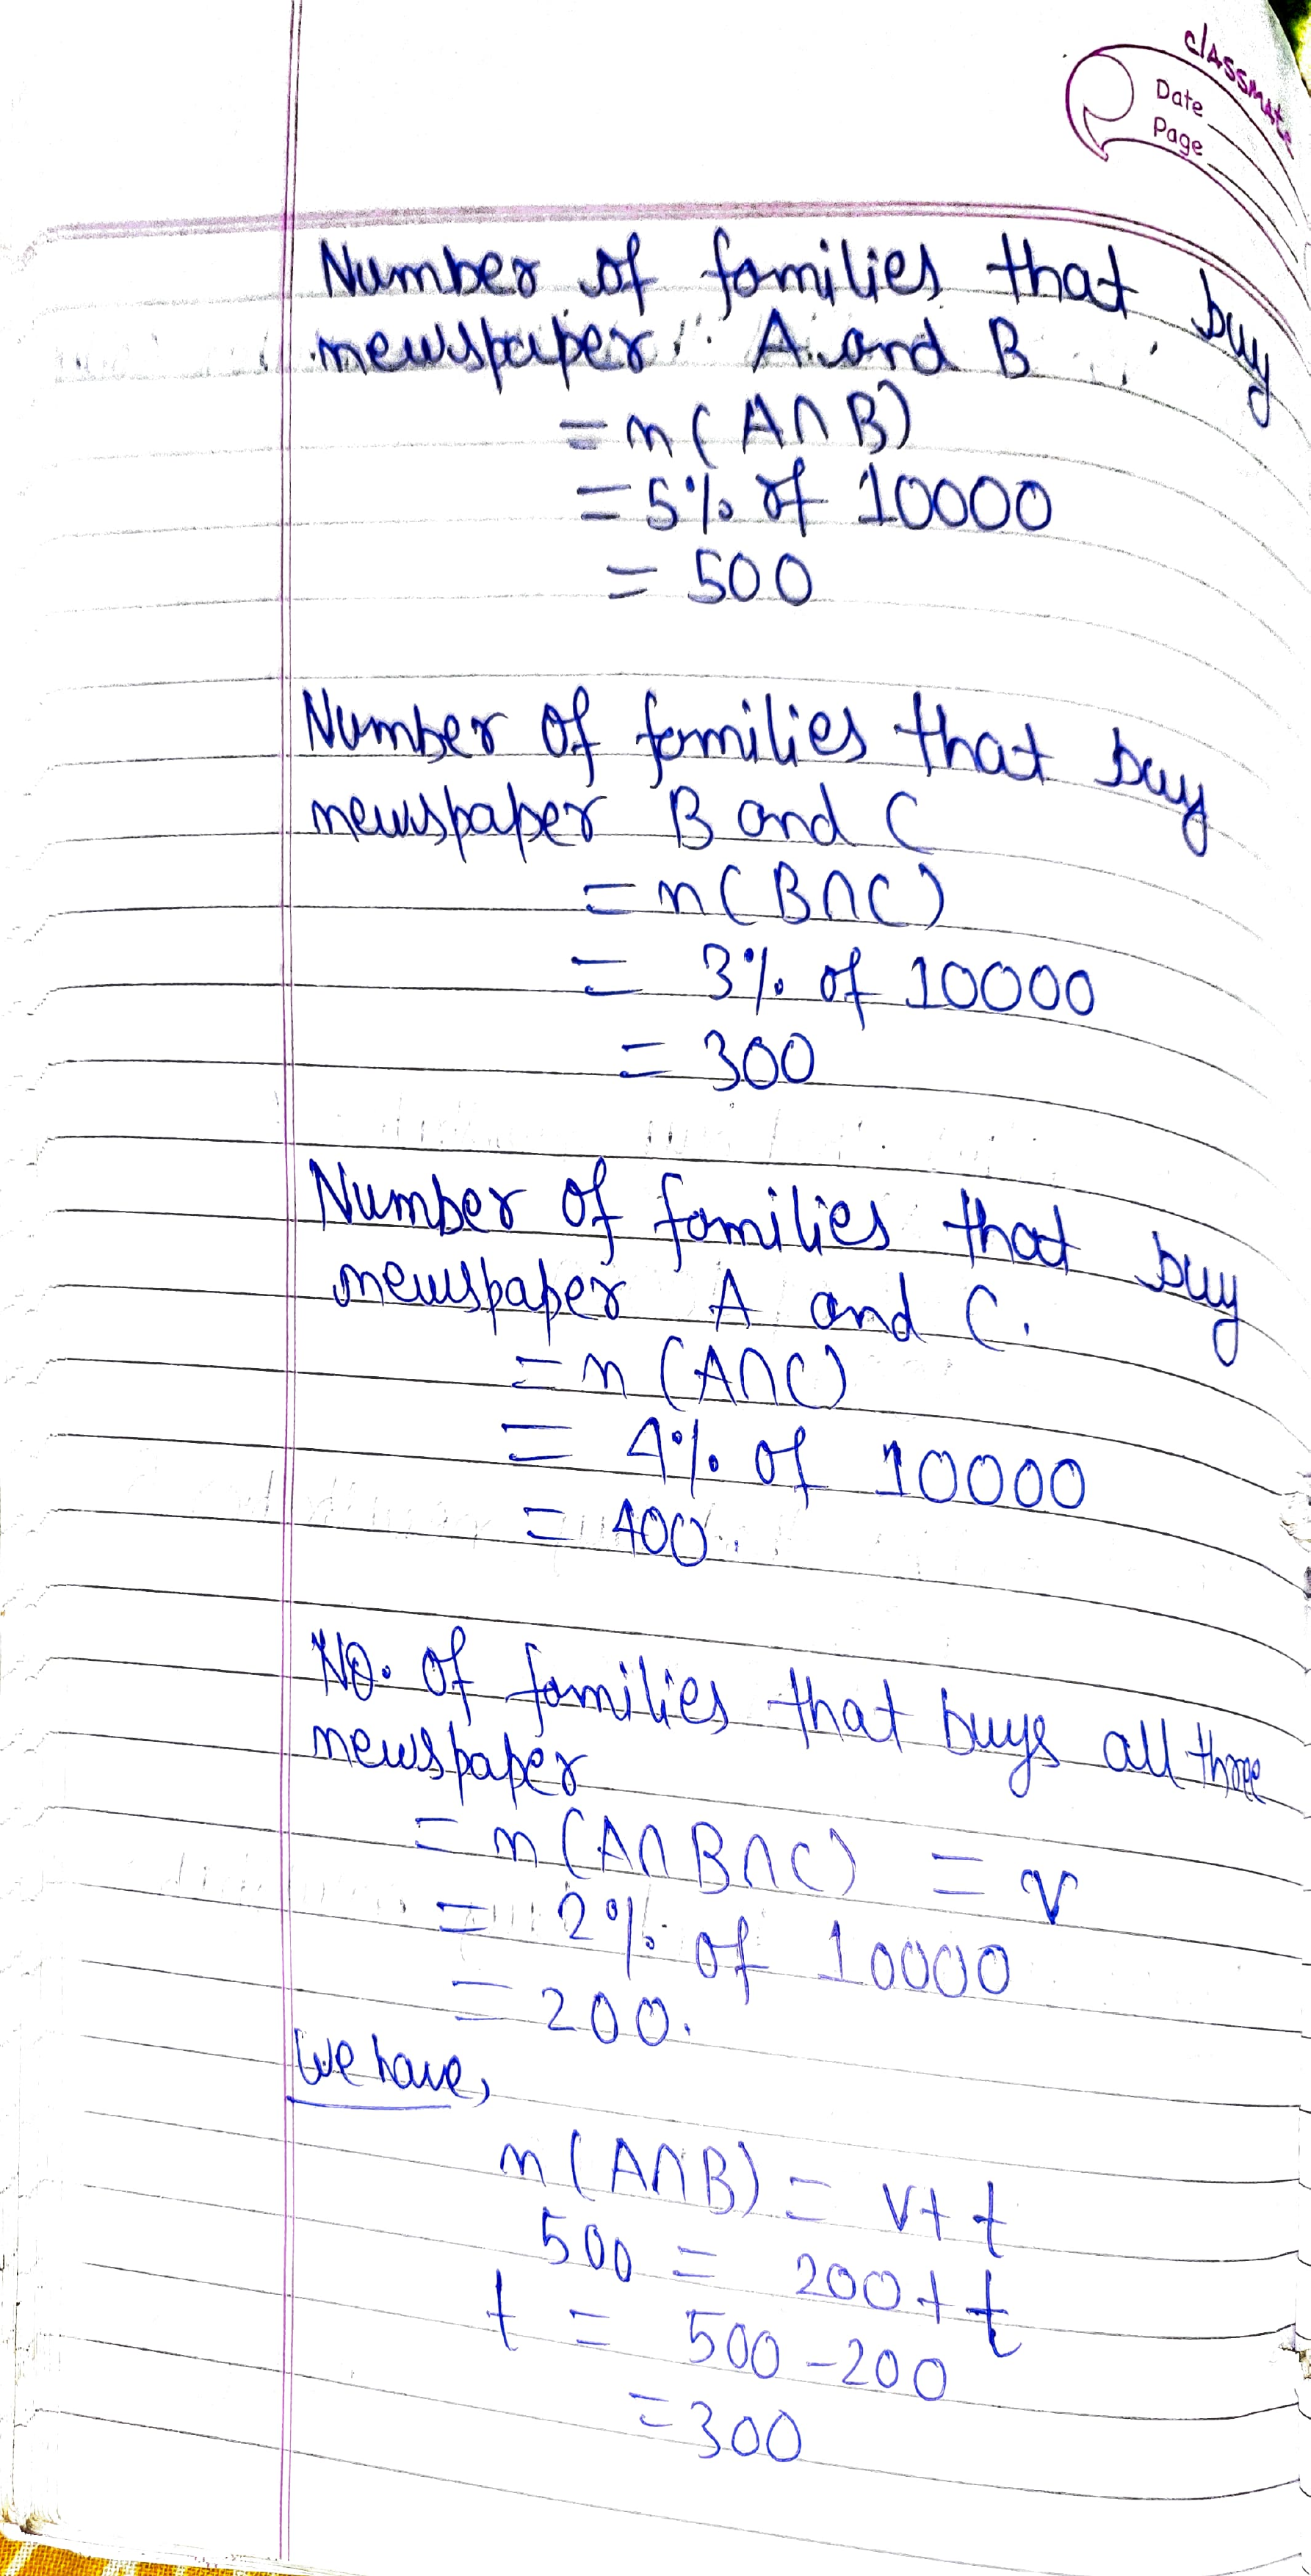 classmate
Date
Page
Number of families that buy
newspaper A and B
= n(A∩B)
= 5% of 10000
= 500
Number of families that buy
newspaper B and C
= n(B∩C)
= 3% of 10000
= 300
Number of families that buy
newspaper A and C.
= n(A∩C)
= 4% of 10000
= 400.
NO. of families that buys all three
newspaper
= n(A∩B∩C) = v
= 2% of 10000
= 200.
We have,
n(A∩B) = v+t
500 = 200+t
t = 500-200
= 300